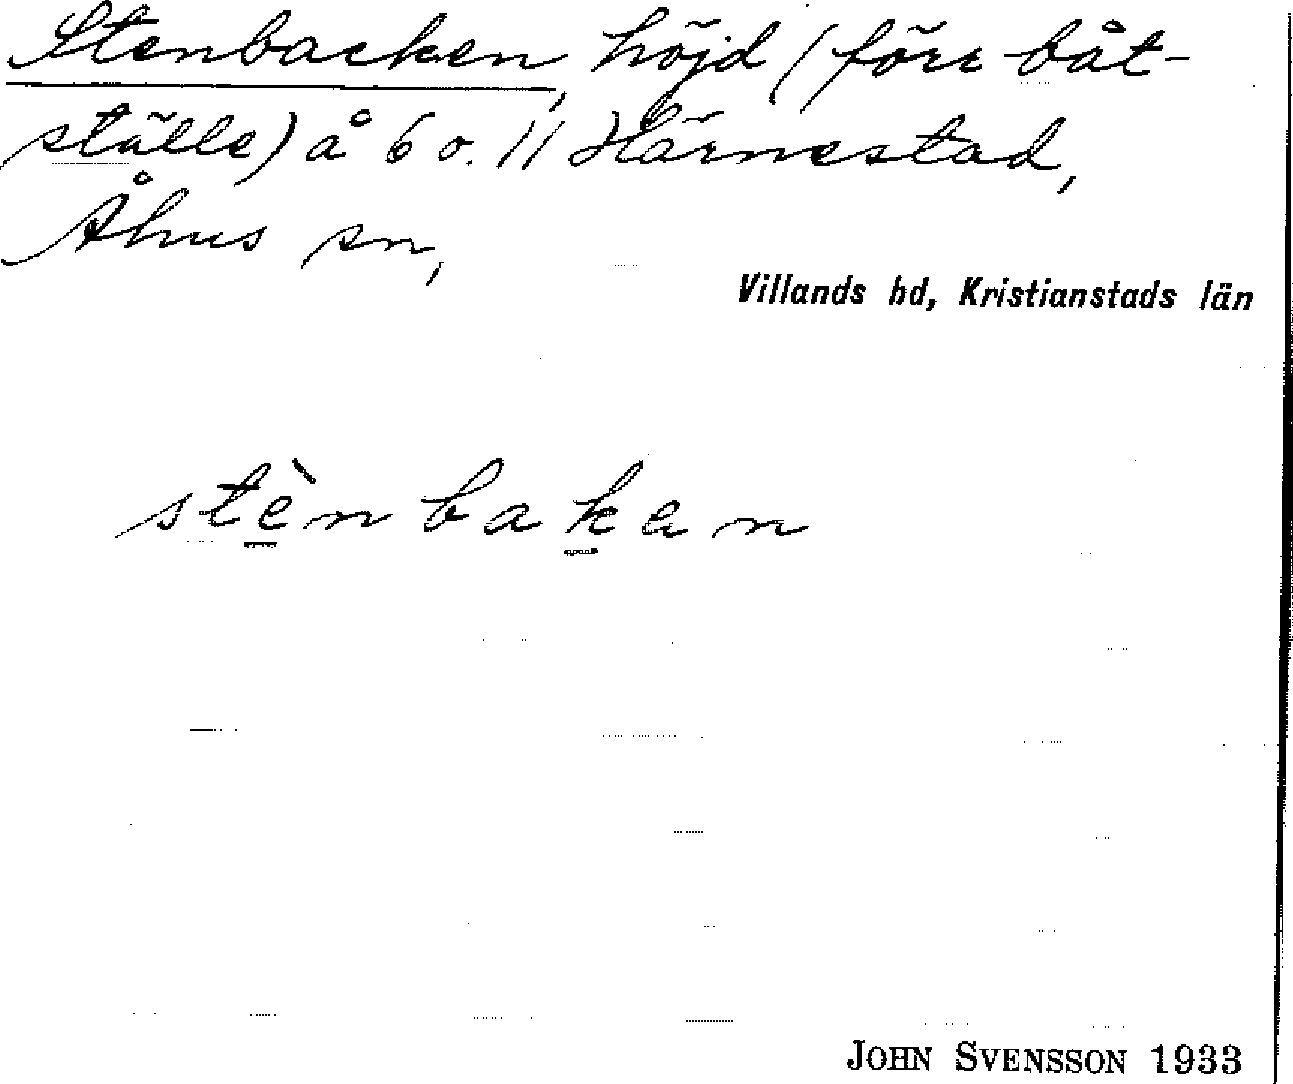 Stenbacken, höjd (förr båt-
ställe) å 6 o. 11 Härnestad,
Åhus sn,
Villands hd, Kristianstads län
stènbakan
JOHN SVENSSON 1933